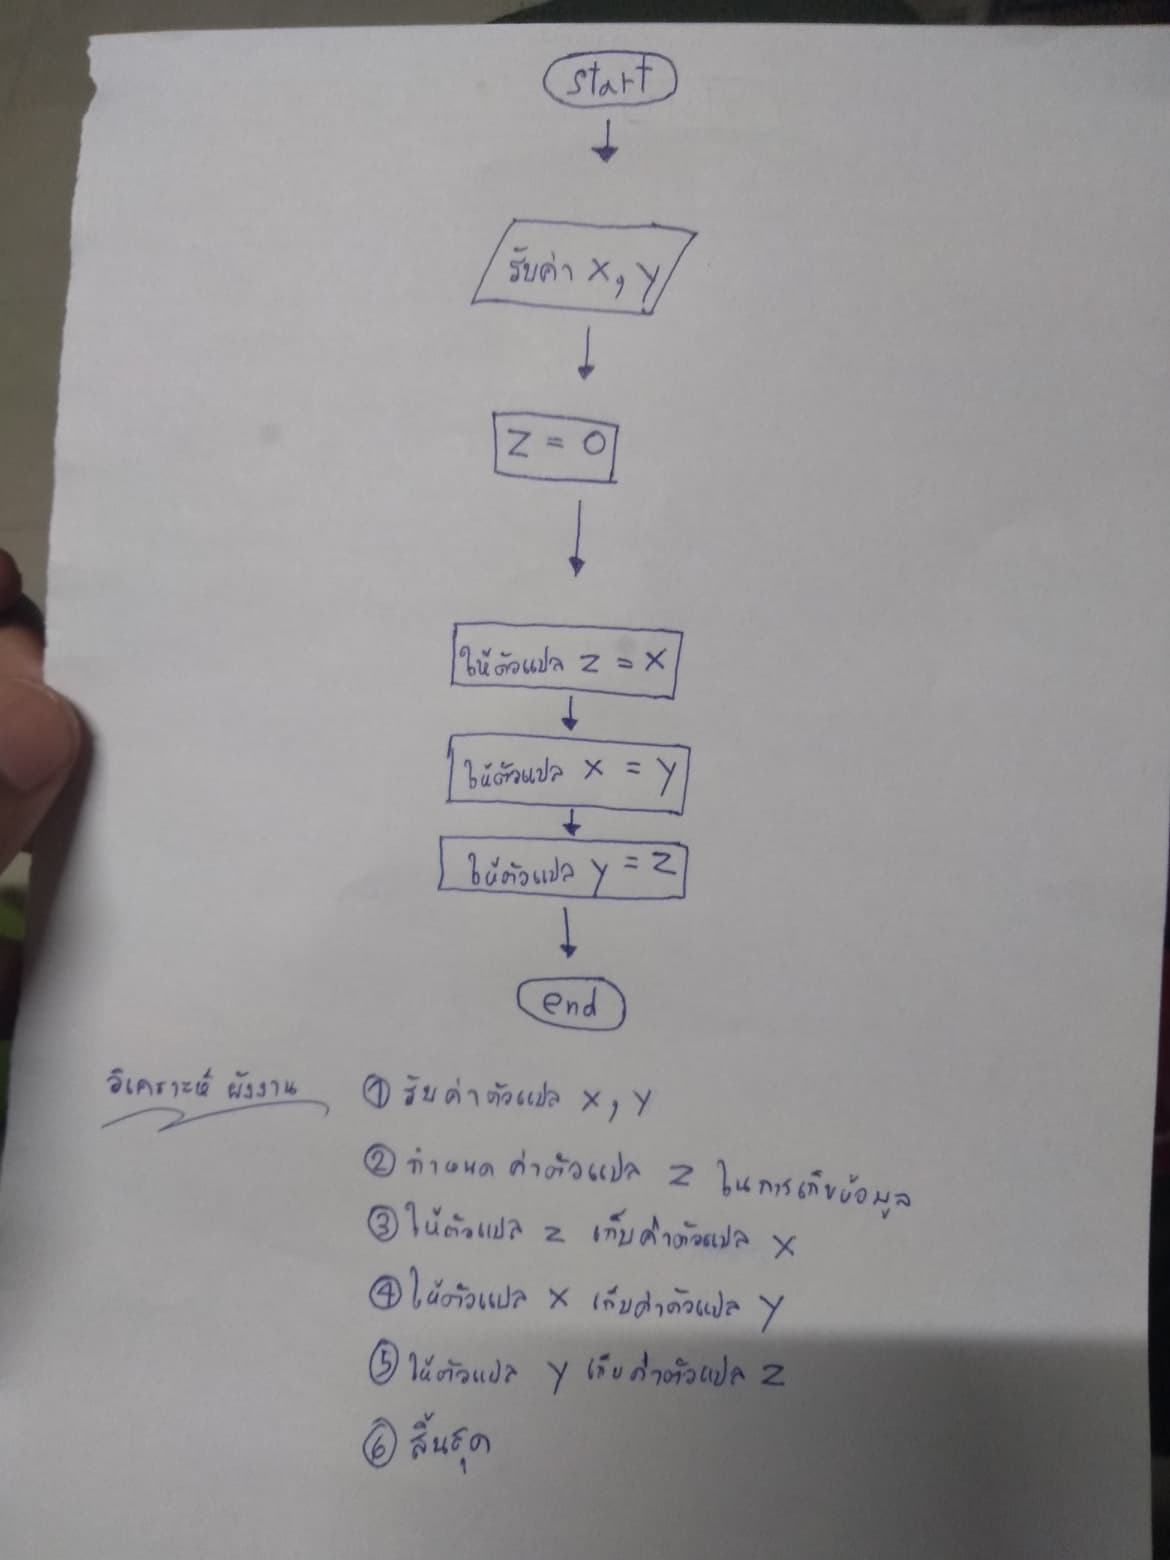 start
รับค่า x, y
z = 0
ให้ตัวแปล z = x
ให้ตัวแปล x = y
ให้ตัวแปล y = z
end
วิเคราะห์ ผังงาน
① รับค่าตัวแปล x, y
② กำหนด ค่าตัวแปล z ในการเก็บข้อมูล
③ ให้ตัวแปล z เก็บค่าตัวแปล x
④ ให้ตัวแปล x เก็บค่าตัวแปล y
⑤ ให้ตัวแปล y เก็บค่าตัวแปล z
⑥ สิ้นสุด